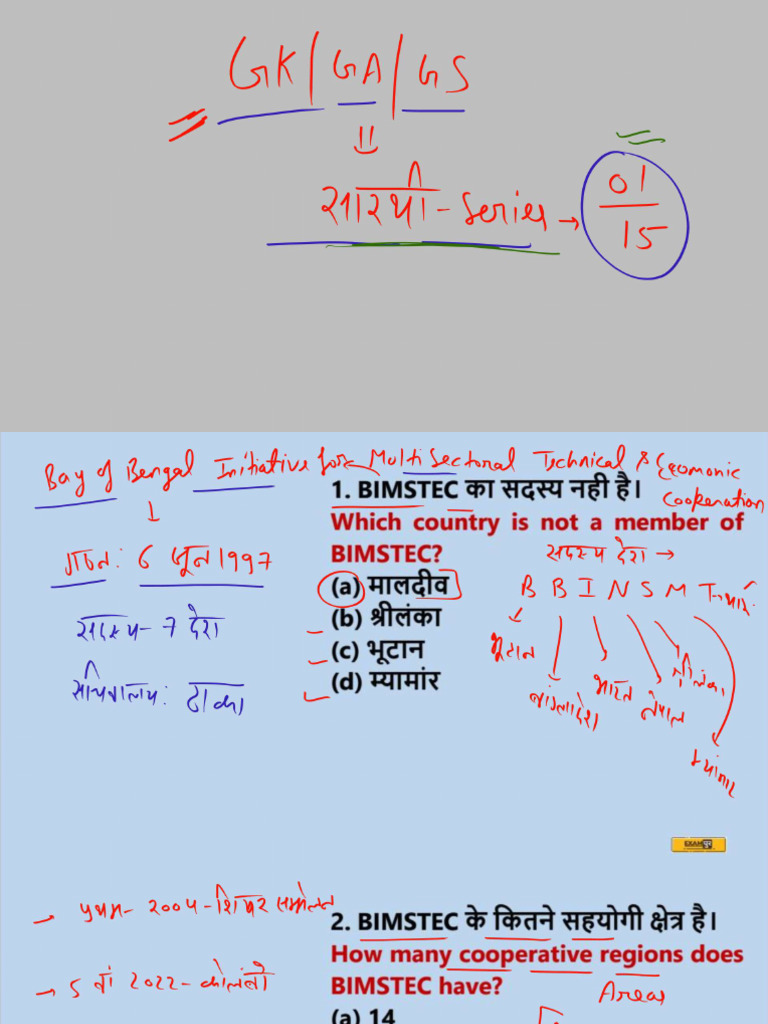 GK/GA/GS
सारथी - Series → 01/15
Bay of Bengal Initiative for Multi Sectoral Technical & Economic Cooperation
गठन: 6 जून 1997
सदस्य - 7 देश
सचिवालय: ढाका
1. BIMSTEC का सदस्य नही है।
Which country is not a member of
BIMSTEC?
(a) मालदीव
(b) श्रीलंका
(c) भूटान
(d) म्यामांर
सदस्य देश →
B B I N S M
भूटान
बांग्लादेश
भारत
नेपाल
श्रीलंका
EXAM पुर
→ प्रथम - 2004 - शिखर सम्मेलन
→ 5 वां 2022 - कोलंबो
2. BIMSTEC के कितने सहयोगी क्षेत्र है।
How many cooperative regions does
BIMSTEC have?
Areas
(a) 14